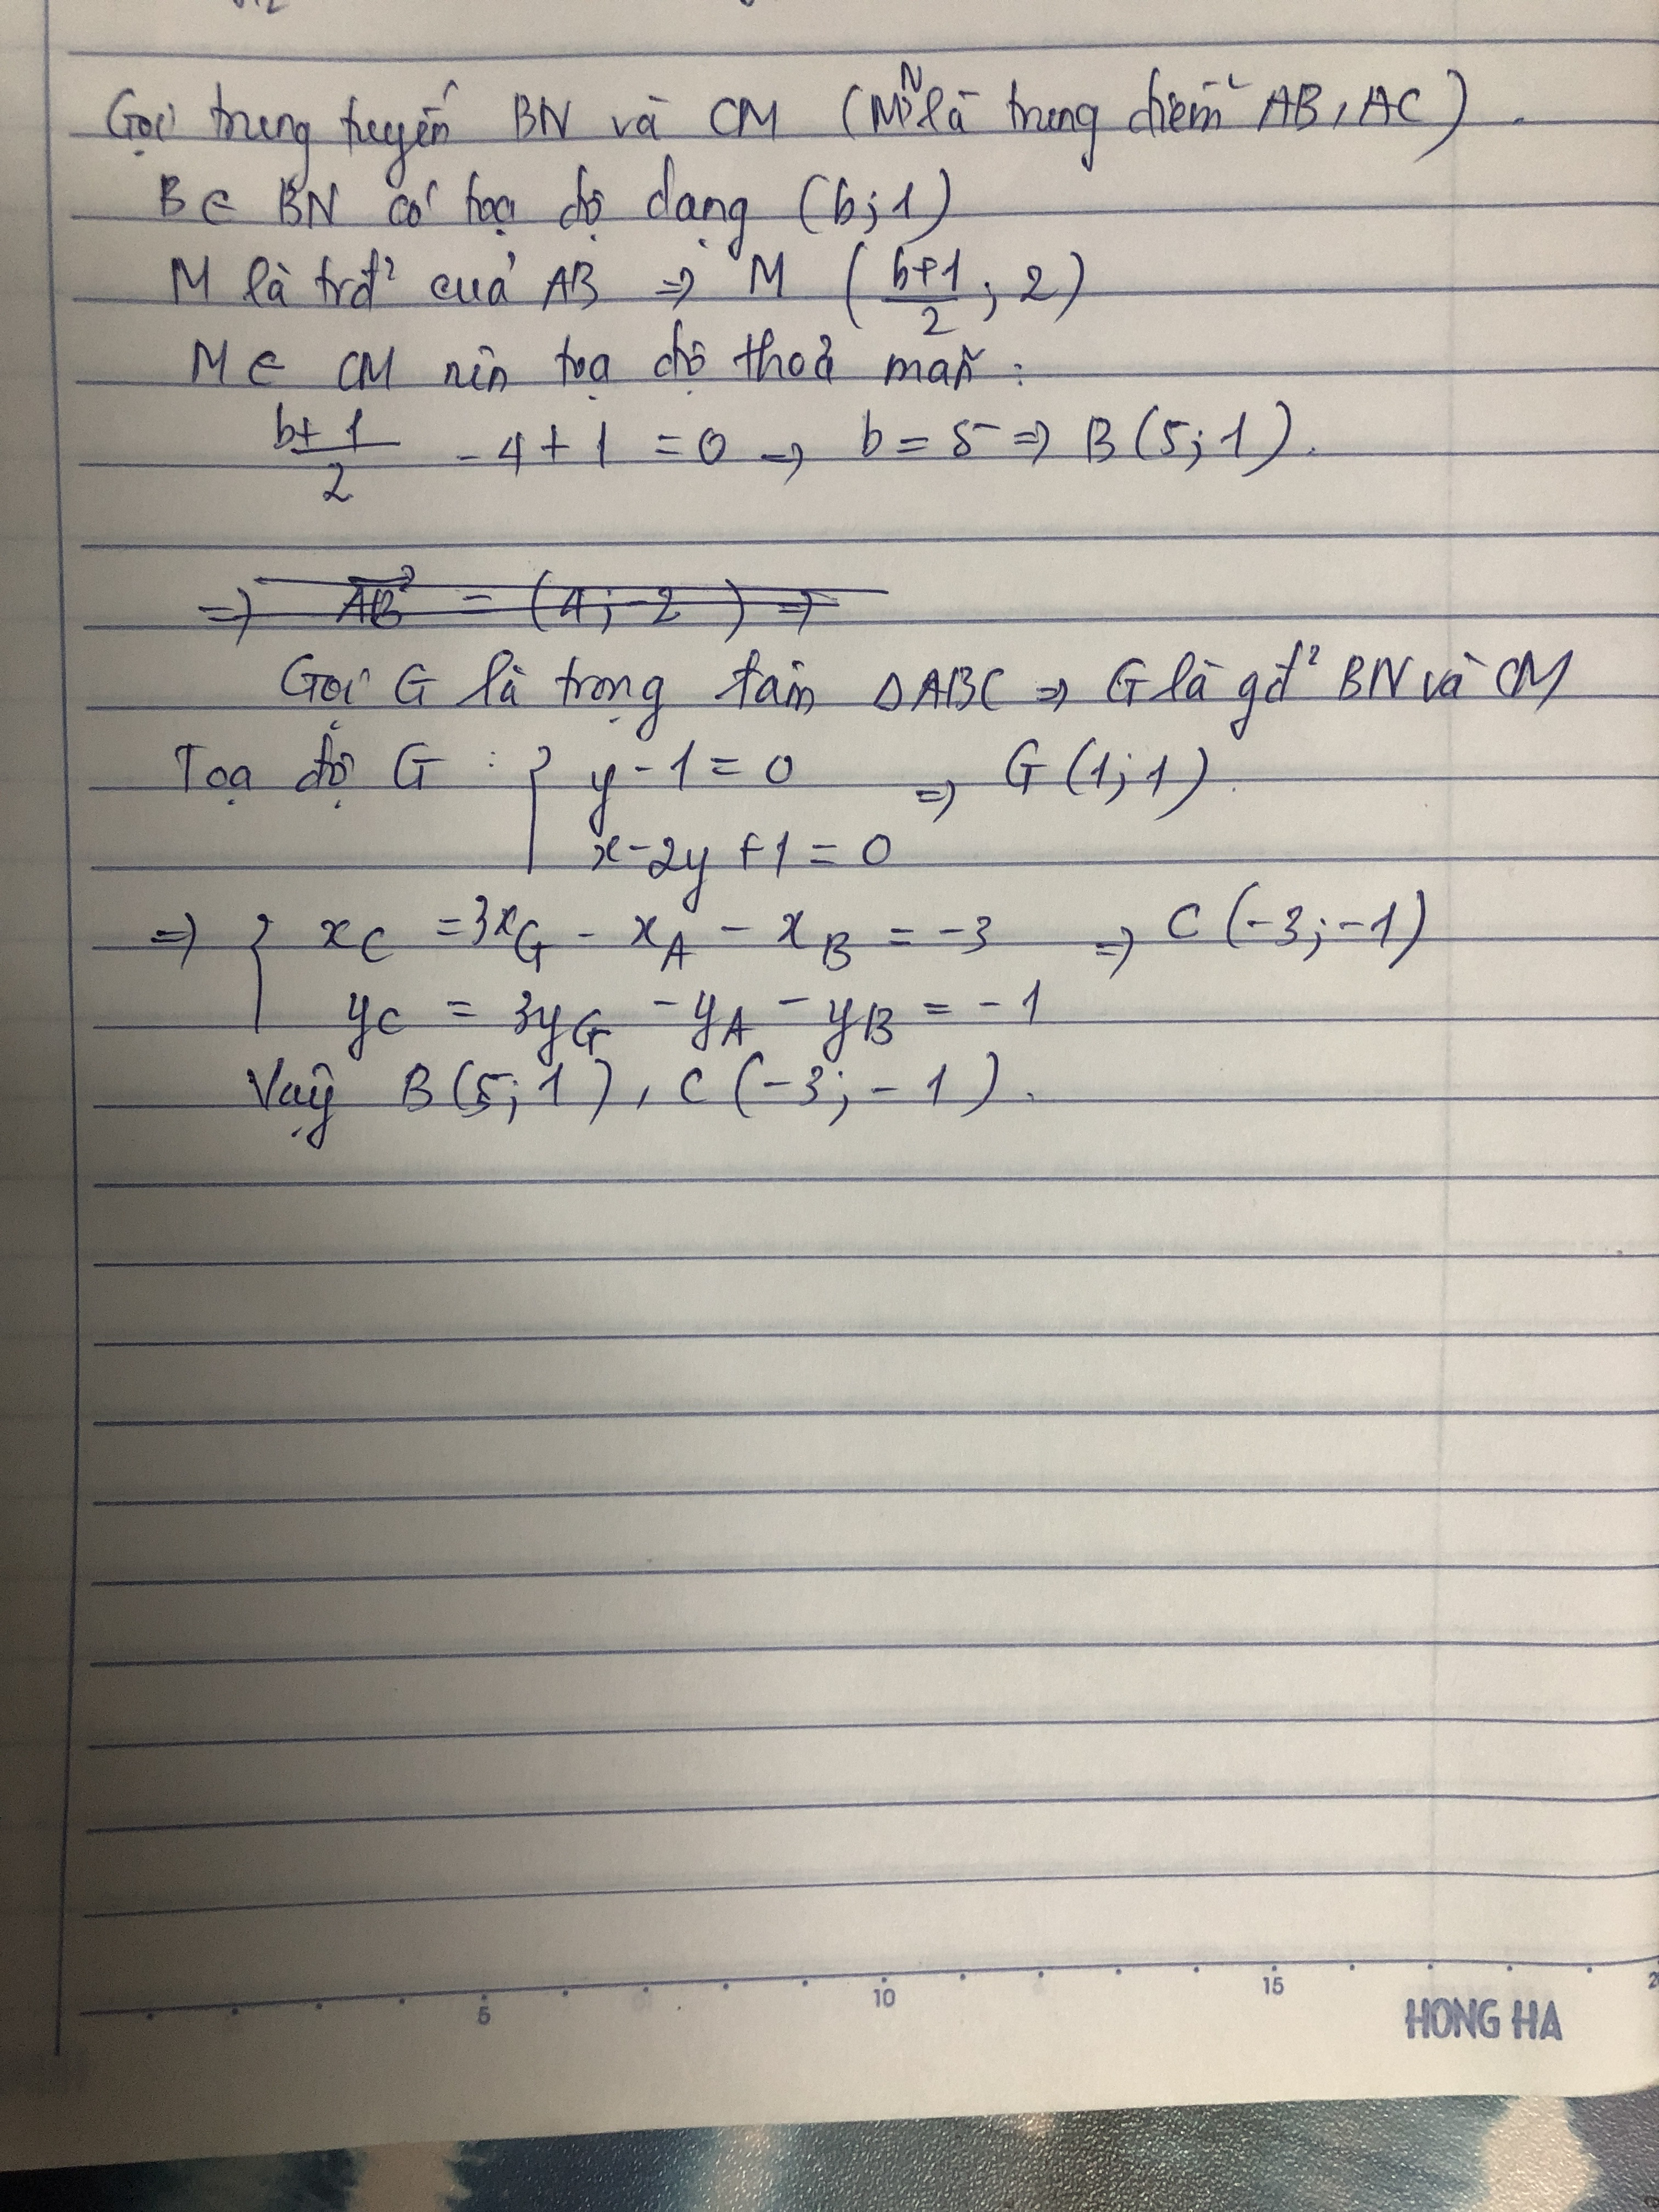 Gọi trung tuyến BN và CM (M, N là trung điểm AB, AC).
B ∈ BN có toạ độ dạng (b; 1)
M là trđ² của AB ⇒ M ( (b+1)/2 ; 2)
M ∈ CM nên toạ độ thoả mãn :
(b+1)/2 - 4 + 1 = 0 ⇒ b = 5 ⇒ B (5; 1).
⇒ AB = (4; -2) ⇒
Gọi G là trọng tâm ΔABC ⇒ G là gđ² BN và CM
Toạ độ G : { y - 1 = 0 ⇒ G (1; 1).
x - 2y + 1 = 0
⇒ { xC = 3xG - xA - xB = -3 ⇒ C (-3; -1)
yC = 3yG - yA - yB = -1
Vậy B (5; 1), C (-3; -1).
5 10 15
HONG HA